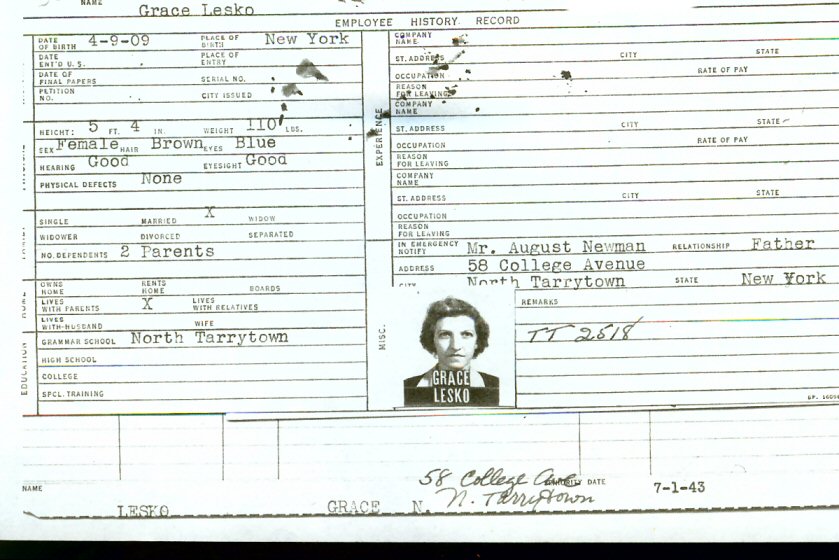 NAME Grace Lesko
EMPLOYEE HISTORY RECORD
DATE OF BIRTH 4-9-09 PLACE OF BIRTH New York
DATE ENT'D U.S. PLACE OF ENTRY
DATE OF FINAL PAPERS SERIAL NO.
PETITION NO. CITY ISSUED
HEIGHT: 5 FT. 4 IN. WEIGHT 110 LBS.
SEX Female HAIR Brown EYES Blue
HEARING Good EYESIGHT Good
PHYSICAL DEFECTS None
SINGLE MARRIED X WIDOW
WIDOWER DIVORCED SEPARATED
NO. DEPENDENTS 2 Parents
OWNS HOME RENTS HOME BOARDS
LIVES WITH PARENTS X LIVES WITH RELATIVES
LIVES WITH HUSBAND WIFE
EDUCATION
GRAMMAR SCHOOL North Tarrytown
HIGH SCHOOL
COLLEGE
SPCL. TRAINING
EXPERIENCE
COMPANY NAME
ST. ADDRESS CITY STATE
OCCUPATION RATE OF PAY
REASON FOR LEAVING
COMPANY NAME
ST. ADDRESS CITY STATE
OCCUPATION RATE OF PAY
REASON FOR LEAVING
COMPANY NAME
ST. ADDRESS CITY STATE
OCCUPATION
REASON FOR LEAVING
MISC.
IN EMERGENCY NOTIFY Mr. August Newman RELATIONSHIP Father
ADDRESS 58 College Avenue
CITY North Tarrytown STATE New York
REMARKS
TT 2518
GRACE
LESKO
58 College Ave
N. Tarrytown
DATE 7-1-43
NAME
LESKO GRACE N.